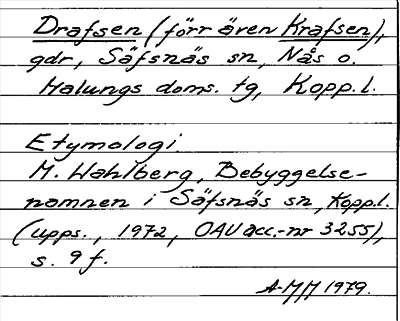 Drafsen (förr även Krafsen),
gdr, Säfsnäs sn, Nås o.
Malungs doms. tg, Kopp.l.
Etymologi
M. Wahlberg, Bebyggelse-
namnen i Säfsnäs sn, Kopp.l.
(Upps., 1972, OAU acc.-nr 3255),
s. 9 f.
AMM 1979.